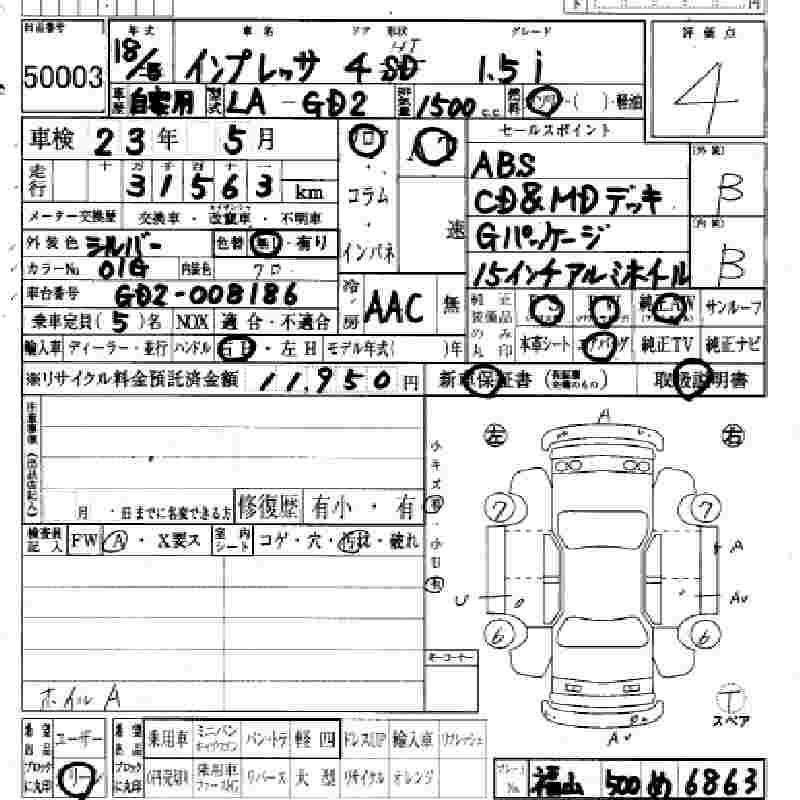 出品番号 年式 車名 ドア 形状 グレード 評価点
50003 18/5 インプレッサ 4 SD 1.5i 4
HT
車歴 自家用 型式 LA-GD2 排気量 1500 c.c. 燃料 ガソリン・( )・軽油
車検 23年 5月 フロア セールスポイント
走行 十 万 千 百 十 一
31563 km コラム ABS (外装) B
メーター交換歴 交換車・改竄車・不明車 CD&MDデッキ
外装色 シルバー 色替 無し・有り インパネ 速 Gパッケージ (内装) B
カラーNo 01G 内装色 クロ 15インチアルミホイール
車台番号 GD2-008186 冷房 AAC 無
乗車定員(5)名 NOX 適合・不適合 純正装備品のみ丸印 PS PW 純正AW サンルーフ
輸入車 ディーラー・並行 ハンドル 右H・左H モデル年式( )年 本革シート エアバッグ 純正TV 純正ナビ
※リサイクル料金預託済金額 11,950円 新車保証書 取扱説明書
注意事項(出品店記入)
月 日までに名変できる方 修復歴 有小・有
検査員記入 FW A・X要ス 室内シート コゲ・穴・汚れ・破れ
小キズ有・小凹有
左 右
A
7 7
A
U Aw
6 6
Aw
T
スペア
コーナー
ホイルA
希望出品ブロックに丸印 ユーザー リース
希望出品ブロックに丸印 乗用車 ミニバン バン・トラ 軽四 ドレスUP 輸入車 リフレッシュ
乗用車 リバース 大型 リサイクル オレンジ
プレートNo. 福山 500 め 6863